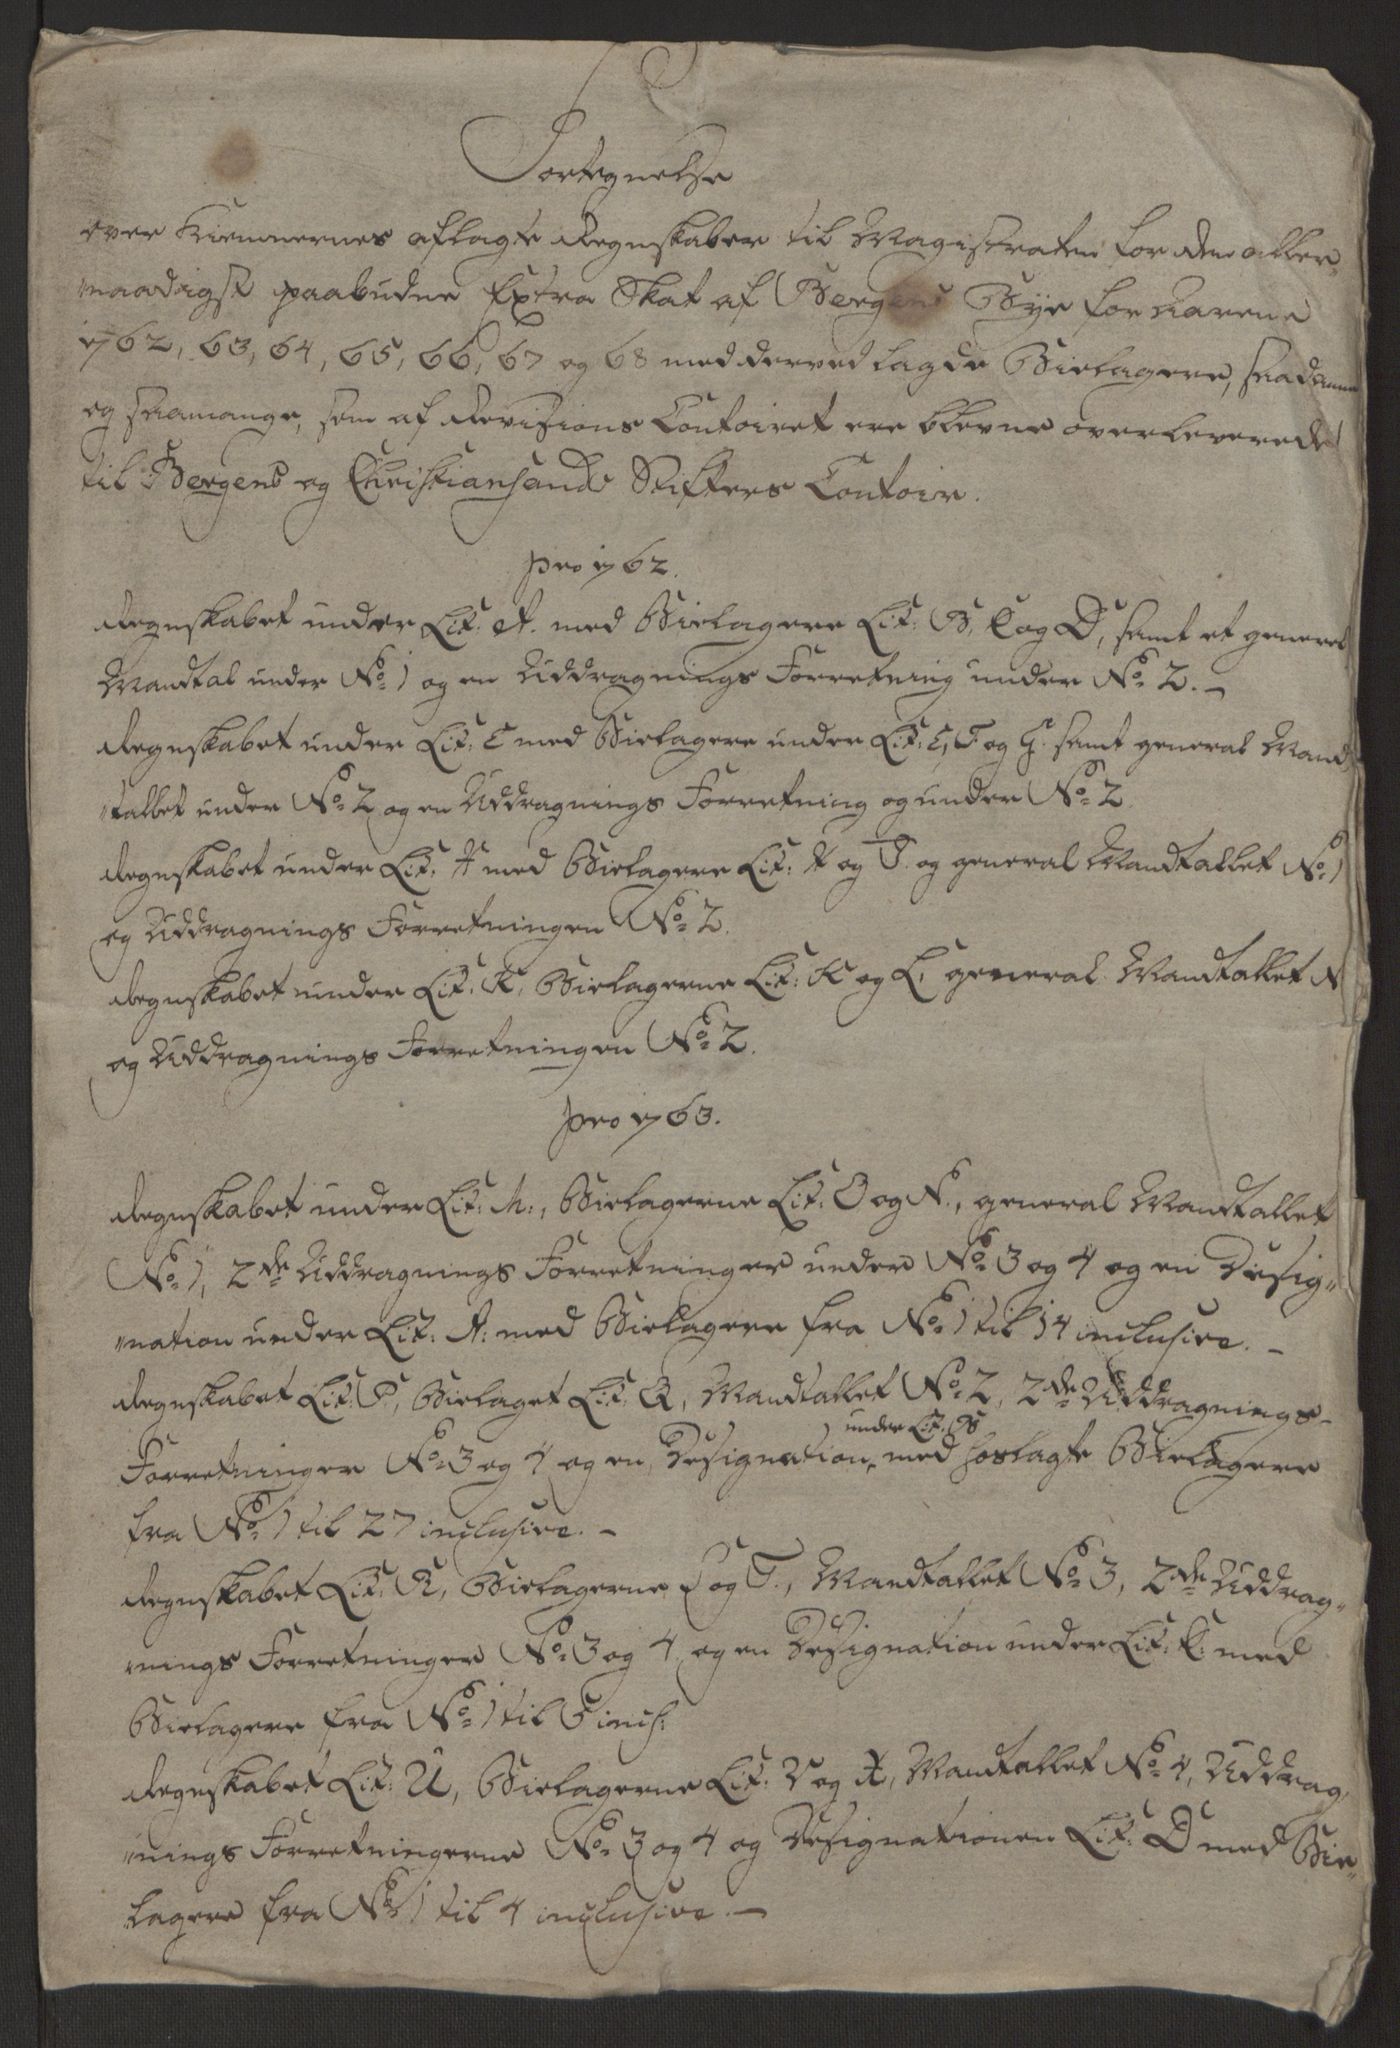 Fortegnelse
over Kiemnernes aflagte Regnskaber til Magistraten for den aller-
naadigst paabudne Extra Skat af Bergens Bye for Aarene
1762, 63, 64, 65, 66, 67 og 68 med derved lagde Bielagere, saadanne
og saamange, som af Revisions Contoiret ere blevne overleverede
til Bergens og Christiansands Stifters Contoir.
pro 1762.
Regnskabet under Lit: A. med Bielagere Lit: B, C og D, samt et general
Mandtal under No 1 og en Uddragnings Forretning under No 2. -
Regnskabet under Lit: E med Bielagere under Lit: E, F og G. samt general Mand-
tallet under No 2 og en Uddragnings Forretning og under No 2.
Regnskabet under Lit: H med Bielagere Lit: H og I. og general Mandtallet No 1
og Uddragnings Forretningen No 2.
Regnskabet under Lit: K, Bielagerne Lit: K og L, general Mandtallet N
og Uddragnings Forretningen No 2.
pro 1763.
Regnskabet under Lit: M:, Bielagerne Lit: O og N., general Mandtallet
No 1, 2de Uddragnings Forretninger under No 3 og 4 og en Desig-
nation under Lit: A: med Bielagere fra No 1 til 14 inclusive. -
Regnskabet Lit: P, Bielaget Lit: Q, Mandtallet No 2, 2de Uddragnings-
Forretninger No 3 og 4 og en Designation under Lit: B med hoslagte Bielagere
fra No 1 til 27 inclusive. -
Regnskabet Lit: R, Bielagerne S og T., Mandtallet No 3, 2de Uddrag-
nings Forretninger No 3 og 4 og en Designation under Lit: C: med
Bielagere fra No 1 til 5 incl:
Regnskabet Lit: U, Bielagerne Lit: V og X, Mandtallet No 4, Uddrag-
nings Forretningerne No 3 og 4 og Designationen Lit: D med Bie-
lagere fra No 1 til 4 inclusive. -